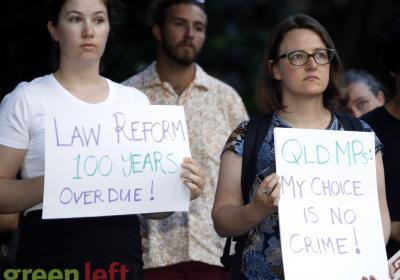 LAW REFORM
100 YEARS
OVERDUE!
QLD MPs:
MY CHOICE
IS NO
CRIME!
green left